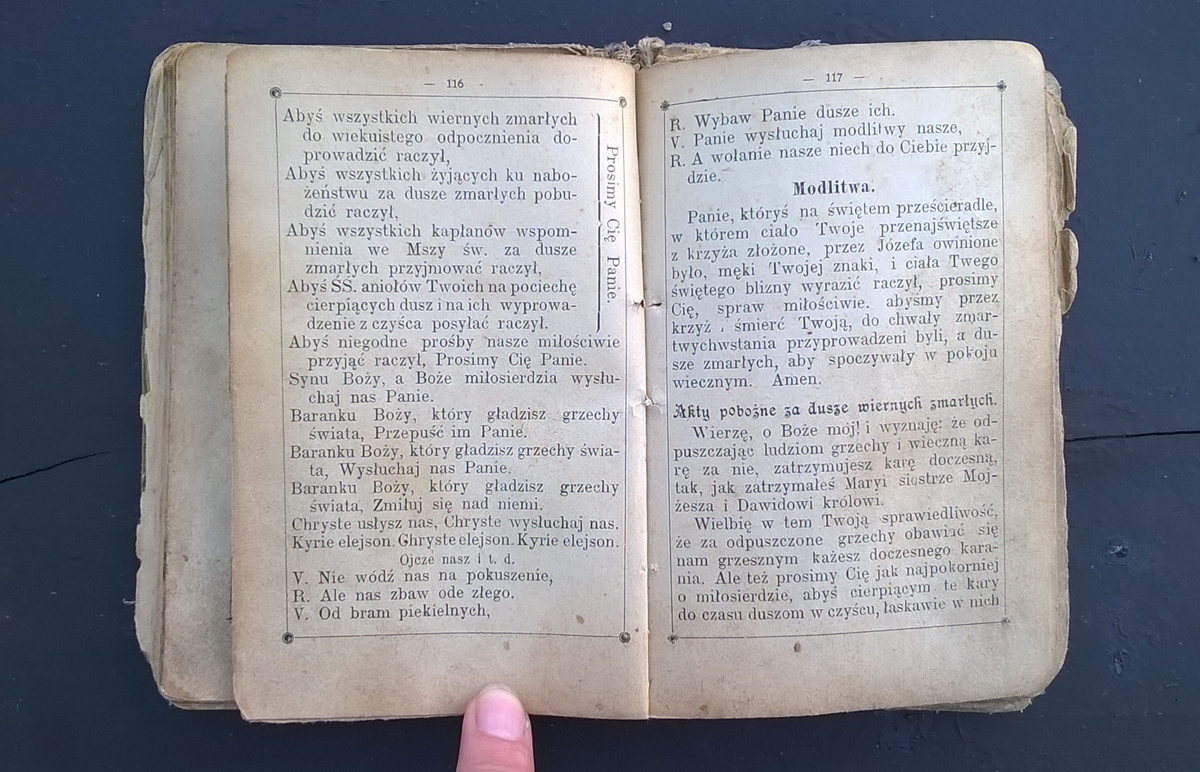 — 116 -
Abyś wszystkich wiernych zmarłych
do wiekuistego odpocznienia do-
prowadzić raczył,
Abyś wszystkich żyjących ku nabo-
żeństwu za dusze zmarłych pobu-
dzić raczył,
Abyś wszystkich kapłanów wspom-
nienia we Mszy św. za dusze
zmarłych przyjmować raczył,
Abyś SS. aniołów Twoich na pociechę
cierpiących dusz i na ich wyprowa-
dzenie z czyśca posyłać raczył.
Prosimy Cię Panie.
Abyś niegodne prośby nasze miłościwie
przyjąć raczył, Prosimy Cię Panie.
Synu Boży, a Boże miłosierdzia wysłu-
chaj nas Panie.
Baranku Boży, który gładzisz grzechy
świata, Przepuść im Panie.
Baranku Boży, który gładzisz grzechy świa-
ta, Wysłuchaj nas Panie.
Baranku Boży, który gładzisz grzechy
świata, Zmiłuj się nad niemi.
Chryste usłysz nas, Chryste wysłuchaj nas.
Kyrie elejson. Ghryste elejson. Kyrie elejson.
Ojcze nasz i t. d.
V. Nie wódź nas na pokuszenie,
R. Ale nas zbaw ode złego.
V. Od bram piekielnych,
— 117 —
R. Wybaw Panie dusze ich.
V. Panie wysłuchaj modlitwy nasze,
R. A wołanie nasze niech do Ciebie przyj-
dzie.
Modlitwa.
Panie, któryś na świętem prześcieradle,
w którem ciało Twoje przenajświętsze
z krzyża złożone, przez Józefa owinione
było, męki Twojej znaki, i ciała Twego
świętego blizny wyrazić raczył, prosimy
Cię, spraw miłościwie. abyśmy przez
krzyż i śmierć Twoją, do chwały zmar-
twychwstania przyprowadzeni byli, a du-
sze zmarłych, aby spoczywały w pokoju
wiecznym. Amen.
Akty pobożne za dusze wiernych zmarłych.
Wierzę, o Boże mój! i wyznaję: że od-
puszczając ludziom grzechy i wieczną ka-
rę za nie, zatrzymujesz karę doczesną,
tak, jak zatrzymałeś Maryi siostrze Moj-
żesza i Dawidowi królowi.
Wielbię w tem Twoją sprawiedliwość,
że za odpuszczone grzechy obawiać się
nam grzesznym każesz doczesnego kara-
nia. Ale też prosimy Cię jak najpokorniej
o miłosierdzie, abyś cierpiącym te kary
do czasu duszom w czyścu, łaskawie w nich